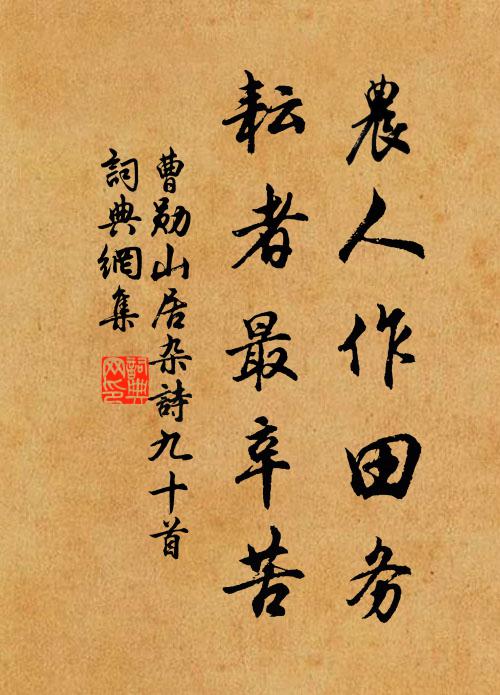 農人作田务
耘者最辛苦
曹勋山居杂詩九十首
詞典網集
詞典
网印